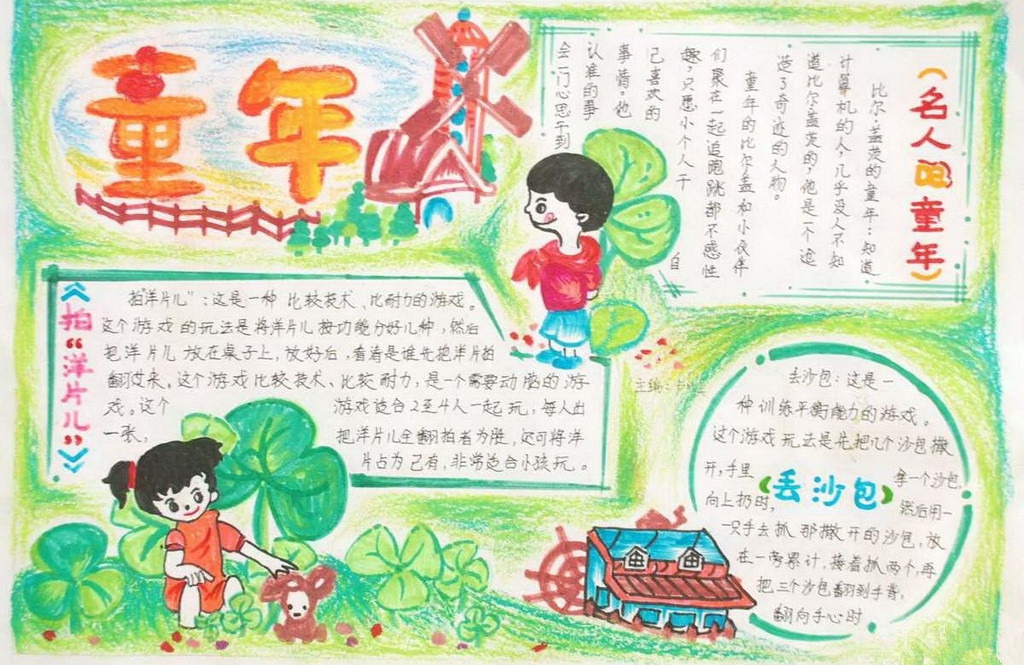 童年
《名人的童年》
比尔·盖茨的童年：知道
计算机的人，几乎没人不知
道比尔·盖茨的，他是一个创
造了奇迹的人物。
童年的比尔·盖和小伙伴
们聚在一起追跑跳都不感性
趣，只愿小个人干自
己喜欢的
事情。他
认准的事
会一门心思干到
《拍“洋片儿”》
拍“洋片儿”：这是一种 比较技术、比耐力的游戏。
这个游戏的玩法是将洋片儿按功能分好几种，然后
把洋片儿放在桌子上，放好后，看看是谁先把洋片拍
翻过来。这个游戏比较技术、比较耐力，是一个需要动脑的游
戏。这个游戏适合2至4人一起玩，每人出
一张，把洋片儿全翻拍者为胜，还可将洋
片占为己有，非常适合小孩玩。
主编：
《丢沙包》
丢沙包：这是一
种训练平衡能力的游戏。
这个游戏玩法是先把几个沙包撒
开，手里拿一个沙包，
向上扔时，然后用一
只手去抓那撒开的沙包，放
在一旁累计，接着抓两个，再
把三个沙包翻到手背，
翻向手心时